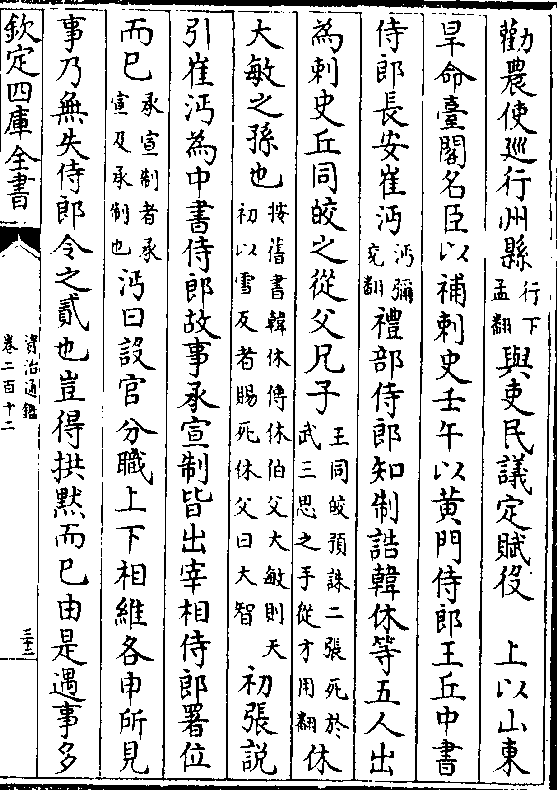 勸農使巡行州縣行下孟翻與吏民議定賦役　上以山東
旱命臺閣名臣以補刺史壬午以黃門侍郎王丘中書
侍郎長安崔沔沔彌兗翻禮部侍郎知制誥韓休等五人出
為刺史丘同皎之從父兄子王同皎預誅二張死於武三思之手從才用翻休
大敏之孫也按舊書韓休傳休伯父大敏則天初以雪反者賜死休父曰大智初張説
引崔沔為中書侍郎故事承宣制皆出宰相侍郎署位
而已承宣制者承宣及承制也沔曰設官分職上下相維各申所見
事乃無失侍郎令之貳也豈得拱黙而已由是遇事多
欽定四庫全書
資治通鑑
卷二百十二
三十二